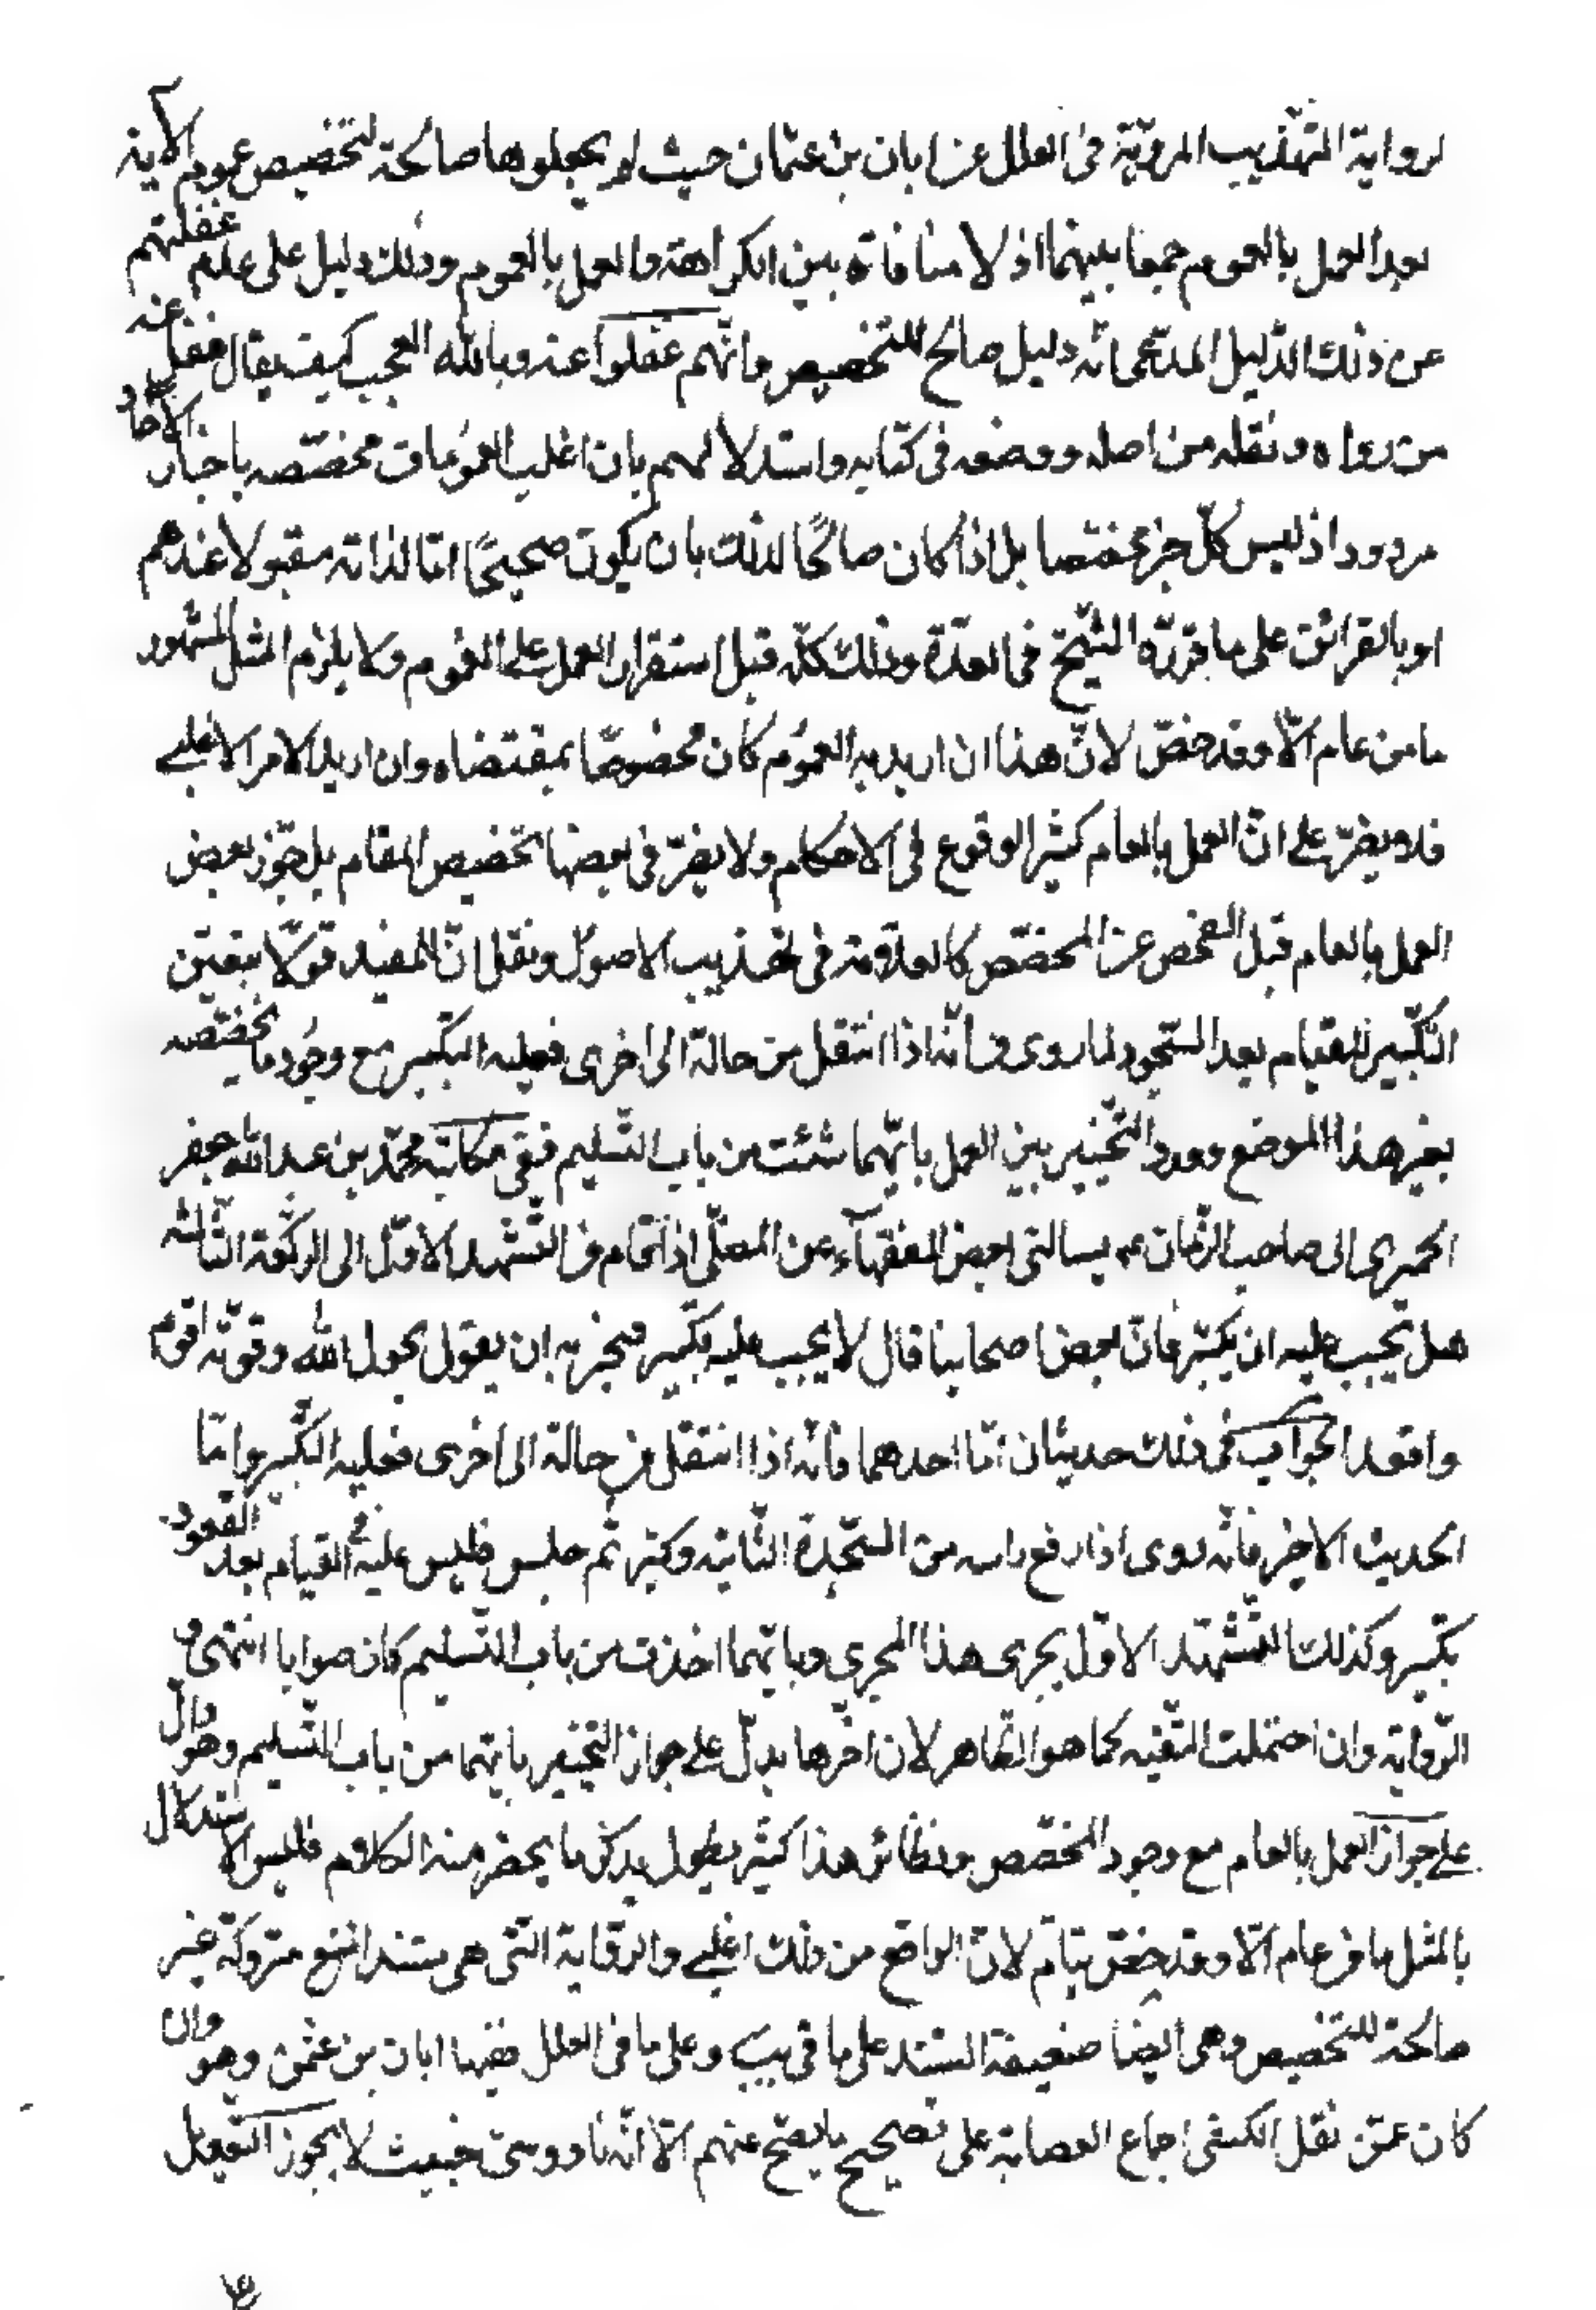 لرواية التهذيب المرويّة في العلل عن ابان بن عثمان حيث لم يجعلوها صالحة لتخصيص عموم الآية
بعد العمل بالعموم جمعا بينهما اذ لا منافاة بين الكراهة والعمل بالعموم وذلك دليل على عدم غفلتهم
عن ذلك الدّليل المدّعى انّه دليل صالح للتخصيص وانّهم غفلوا عنه وبالله العجب كيف يقال غفل عنه
من رواه ونقله من اصله ووضعه في كتابه واستدلالهم بان اغلب العمومات مخصّصه باخبار الآحاد
مردود اذ ليس كلّ خبر مخصّصا بل اذا كان صالحًا لذلك بان يكون صحيحًا امّا لذاته مقبولا عندهم
او بالقرائن على ما قرّره الشّيخ في العدّة وذلك كلّه قبل استقرار العمل على العموم ولا يلزم المثل المشهور
ما من عام الّا وقد خصّ لانّ هذا ان اريد به العموم كان مخصوصًا بمقتضاه وان اريد الامر الاغلبي
فلا يضرّ على انّ العمل بالعام كثير الوقوع في الاحكام ولا يضرّ في بعضها تخصيص المقام بل جوّز بعض
العمل بالعام قبل الفحص عن المخصّص كالعلامة في تهذيب الاصول ونقل انّ المفيد قوّلا بتعيّن
التّكبير للقيام بعد السّجود لما روى من انّه اذا انتقل من حالة الى اخرى فعليه التكبير مع وجود ما يخصّصه
بغير هذا الموضع وورد التّخيير بين العمل بايّهما شئت من باب التّسليم ففي مكاتبة محمّد بن عبد الله بن جعفر
الحميري الى صاحب الزّمان عم يسالني بعض الفقهآء عن المصلّي اذا قام من التّشهد الاوّل الى الركعة الثّالثه
هل يجب عليه ان يكبّر فانّ بعض اصحابنا قال لا يجب عليه تكبير فيجزيه ان يقول بحول الله وقوّته اقوم
واقعد الجواب في ذلك حديثان امّا احدهما فانّه اذا انتقل من حالة الى اخرى فعليه التكبير وامّا
الحديث الاخر فانّه روى اذا رفع راسه من السّجدة الثّانيه وكبّر ثم جلس فليس عليه في القيام بعد القعود
تكبير وكذلك التّشهّد الاوّل يجرى هذا المجرى وبايّهما اخذت من باب التّسليم كان صوابا انتهى و
الرّواية وان احتملت التّقيه كما هو الظّاهر لان اخرها يدلّ على جواز التّخيير بايهما من باب التّسليم وهو دالّ
على جواز العمل بالعام مع وجود المخصّص ونظائر هذا كثير يطول بذكر ما يحضر منه الكلام فليس الاستدلال
بالمثل ما من عام الّا وقد خصّ بتامّ لانّ الواقع من ذلك اغلبي والرّواية التي هى مستند المنع متروكة غير
صالحة للتخصيص وهى ايضا ضعيفة السّند على ما في يب وعلى ما في العلل ففيها ابان بن عثمن وهو وان
كان عمّن نقل الكشى اجماع العصابة على تصحيح ما يصحّ عنهم الّا انّه ناووسىّ خبيث لا يجوز التّعويل